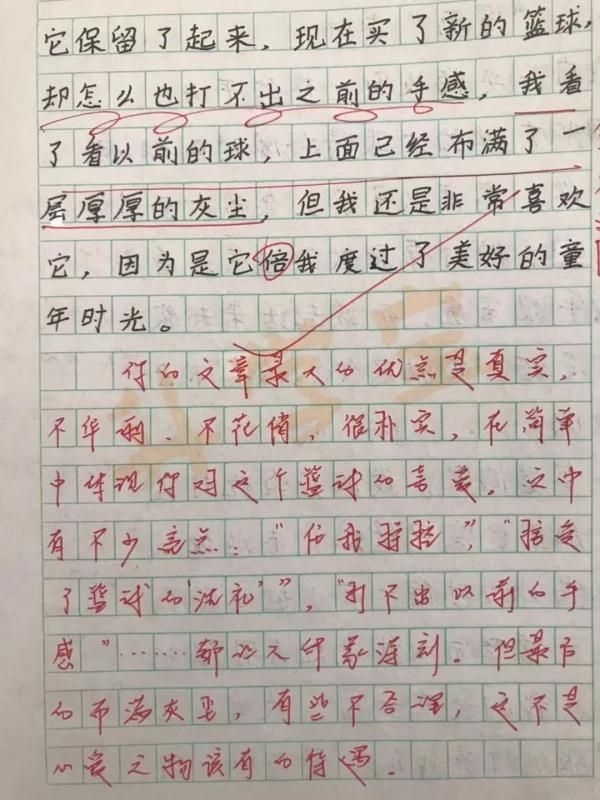 它保留了起来，现在买了新的篮球，
却怎么也打不出之前的手感，我看
了看以前的球，上面已经布满了一
层厚厚的灰尘，但我还是非常喜欢
它，因为是它倍我度过了美好的童
年时光。
你的文章最大的优点是真实，
不华丽、不花俏，很朴实，在简单
中体现你对这个篮球的喜爱。文中
有不少亮点："任我"，"接受
了篮球的'洗礼'"，"打不出以前的手
感"……都让人印象深刻。但最后
的布满灰尘，有些不合理，这不是
心爱之物该有的待遇。